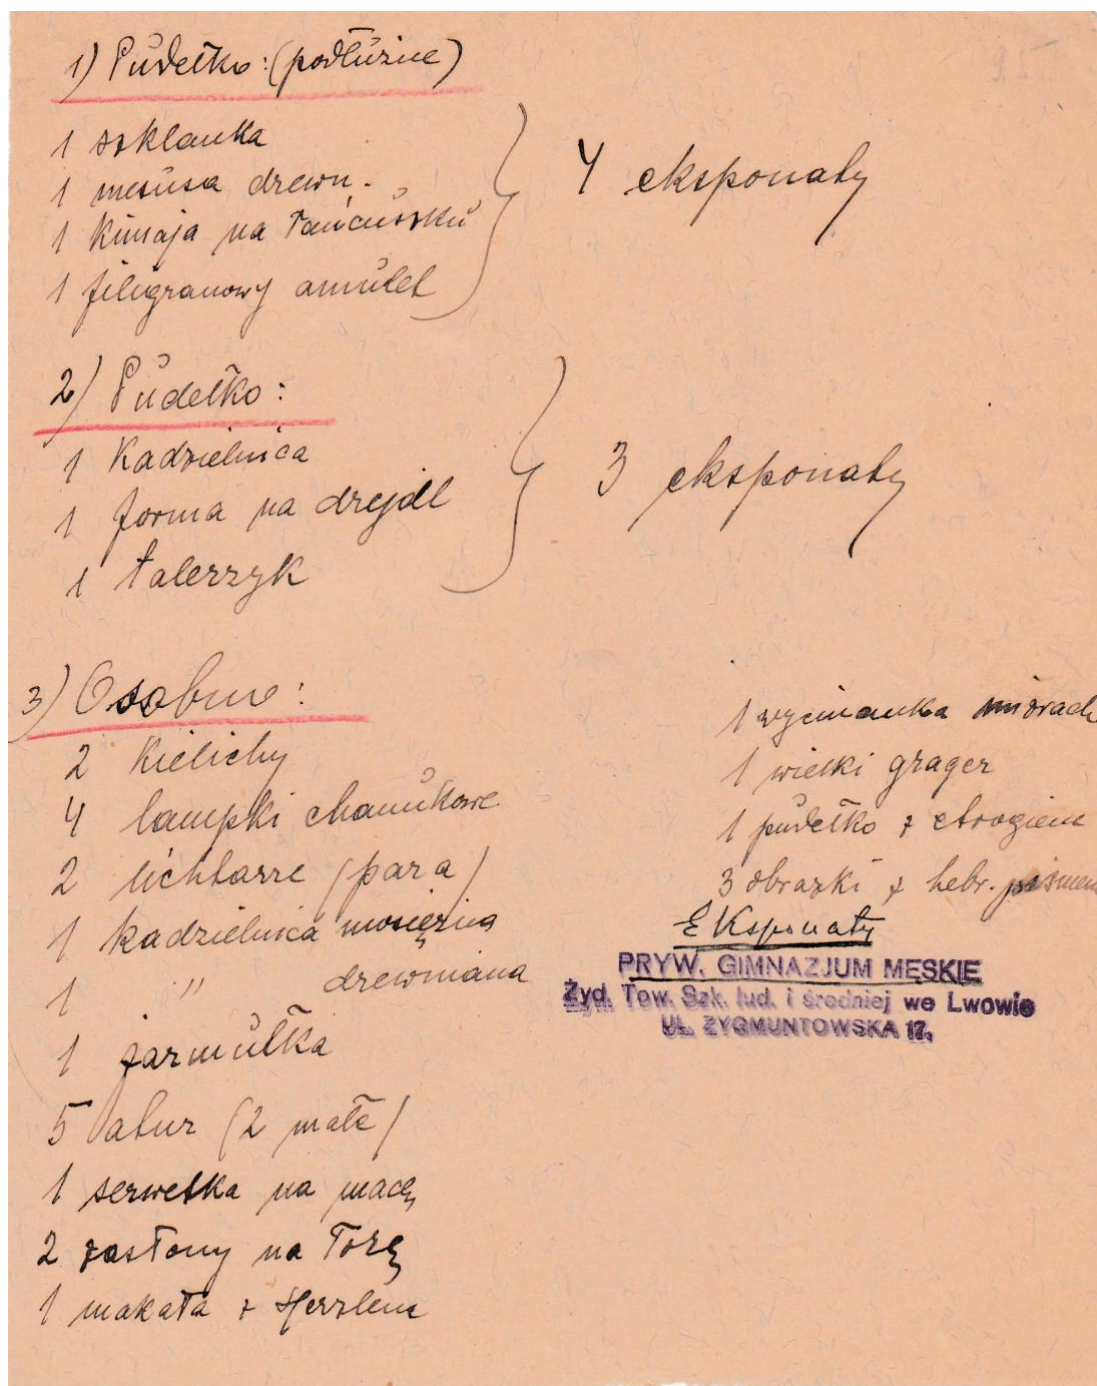 1) Pudełko: (podłużne)
1 szklanka
1 mesusa drewn.
1 Kimaja na łańcuszku
1 filigranowy amulet
4 eksponaty
2) Pudełko:
1 Kadzielnica
1 forma na drejdl
1 talerzyk
3 eksponaty
3) Osobno:
2 Kielichy
4 lampki chanukowe
2 lichtarze (para)
1 kadzielnica mosiężna
1 " drewniana
1 jarmułka
5 atur (2 małe)
1 serwetka na macę
2 zasłony na Torę
1 makata z Herzlem
1 wycinanka mizrach
1 wielki grager
1 pudełko z etrogiem
3 obrazki z hebr. pismem
Eksponaty
PRYW. GIMNAZJUM MĘSKIE
Żyd. Tow. Szk. lud. i średniej we Lwowie
UL. ZYGMUNTOWSKA 17.